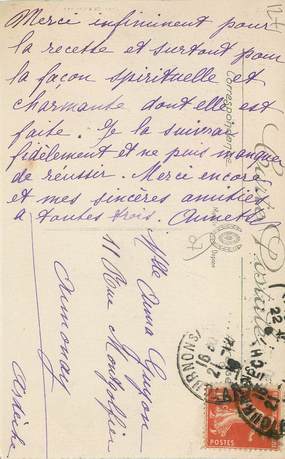 Merci infiniment pour
la recette et surtout pour
la façon spirituelle et
charmante dont elle est
faite. Je la suivrai
fidèlement et ne puis manquer
de réussir. Merci encore
et mes sincères amitiés
à toutes trois. Annette
Mlle Anna Guyon
11 Rue Montgolfier
Annonay
Ardèche
Correspondance
Carte Postale
TOURNON
POSTES